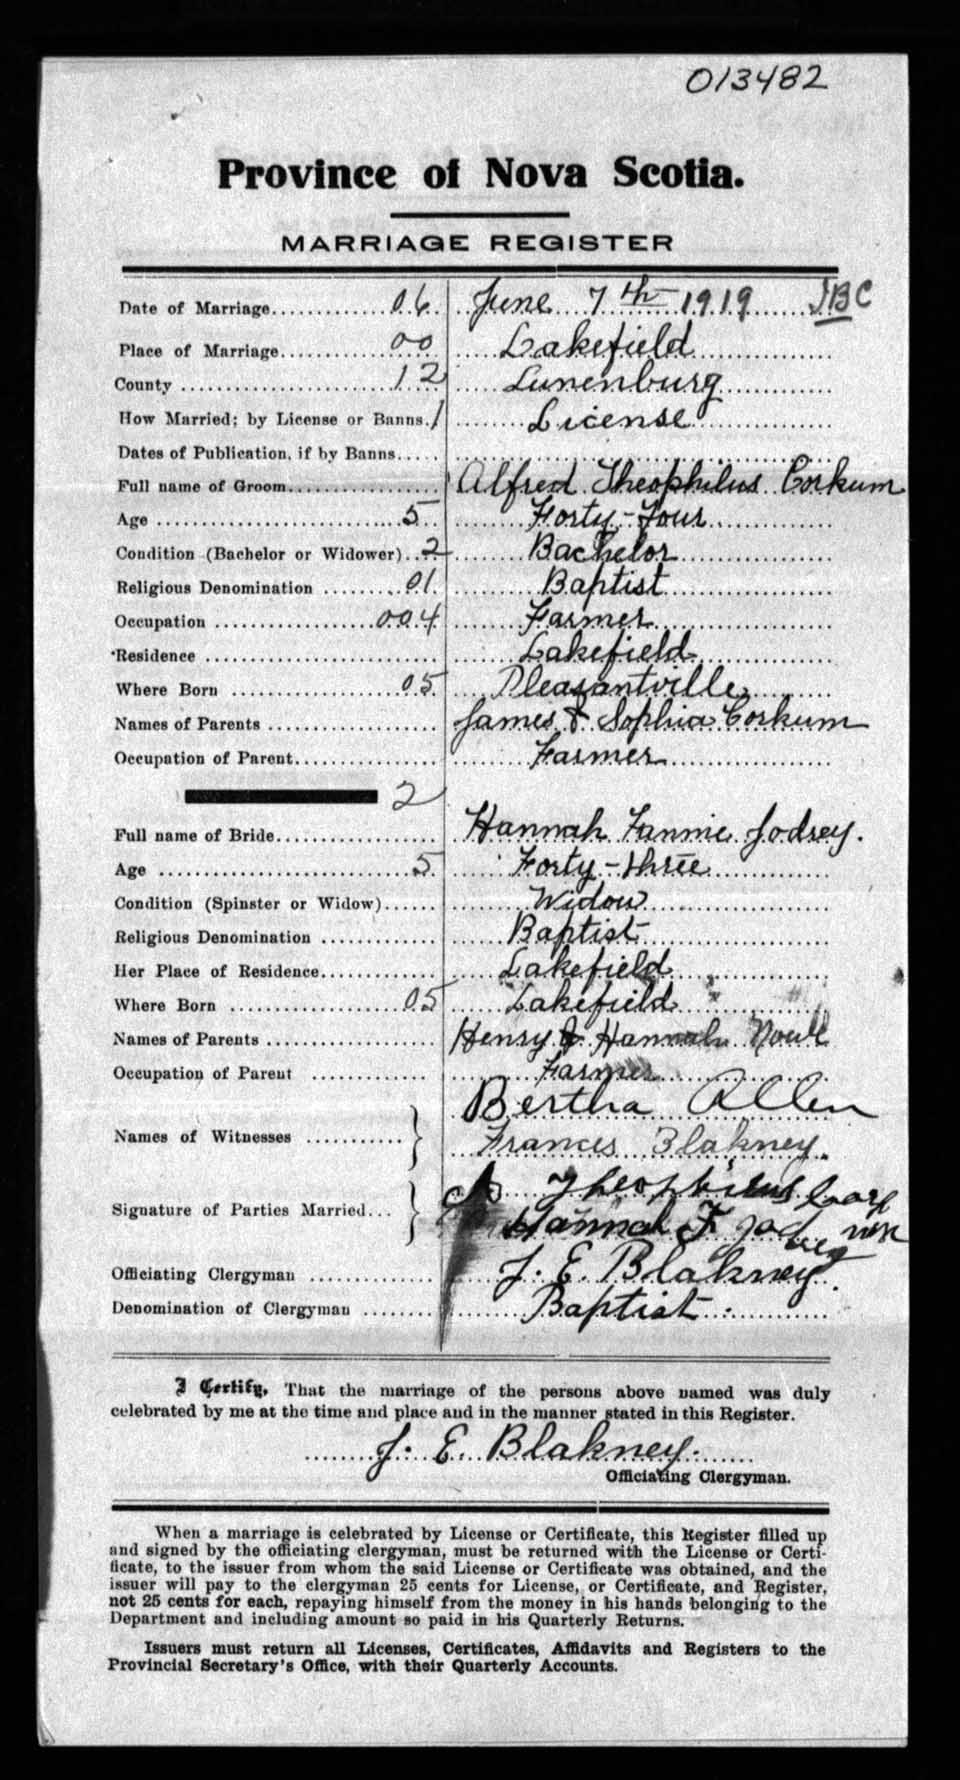 013482
Province of Nova Scotia.
MARRIAGE REGISTER
Date of Marriage 06 June 7th 1919 JBC
Place of Marriage 00 Lakefield
County 12 Lunenburg
How Married; by License or Banns. 1 License
Dates of Publication, if by Banns
Full name of Groom Alfred Theophilus Corkum
Age 5 Forty-Four
Condition (Bachelor or Widower) 2 Bachelor
Religious Denomination 01 Baptist
Occupation 004 Farmer
Residence Lakefield
Where Born 05 Pleasantville
Names of Parents James & Sophia Corkum
Occupation of Parent Farmer
2
Full name of Bride Hannah Fannie Jodrey.
Age 5 Forty-three
Condition (Spinster or Widow) Widow
Religious Denomination Baptist
Her Place of Residence Lakefield
Where Born 05 Lakefield
Names of Parents Henry & Hannah
Occupation of Parent Farmer
Bertha Allen
Names of Witnesses
Frances Blakney.
Theophilus
Signature of Parties Married
Hannah F
Officiating Clergyman J. E. Blakney.
Denomination of Clergyman Baptist.
I Certify, That the marriage of the persons above named was duly
celebrated by me at the time and place and in the manner stated in this Register.
J. E. Blakney.
Officiating Clergyman.
When a marriage is celebrated by License or Certificate, this Register filled up
and signed by the officiating clergyman, must be returned with the License or Certi-
ficate, to the issuer from whom the said License or Certificate was obtained, and the
issuer will pay to the clergyman 25 cents for License, or Certificate, and Register,
not 25 cents for each, repaying himself from the money in his hands belonging to the
Department and including amount so paid in his Quarterly Returns.
Issuers must return all Licenses, Certificates, Affidavits and Registers to the
Provincial Secretary's Office, with their Quarterly Accounts.